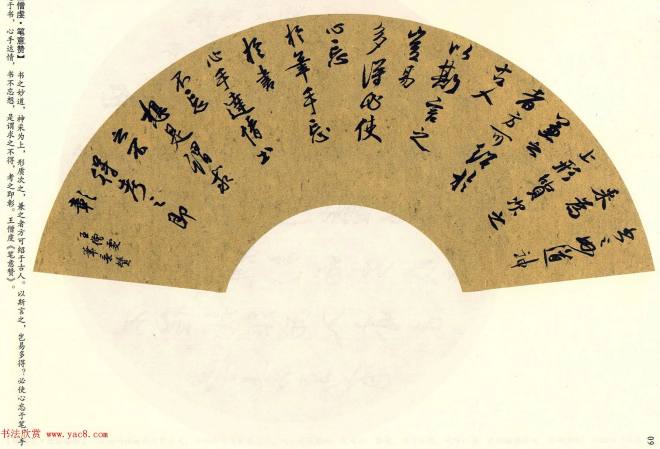 书之妙道神
采为上形质次之
兼之
者方可绍於
古人
以斯言之
岂易
多得必使
心忘
於笔手忘
於书
心手达情书
不忘
想是谓求
之不
得考之即
彰
王僧虔
笔意赞
僧虔·笔意赞】 书之妙道，神采为上，形质次之，兼之者方可绍于古人。以斯言之，岂易多得？必使心忘于笔，手
于书，心手达情，书不忘想，是谓求之不得，考之即彰。王僧虔《笔意赞》。
书法欣赏 www.yac8.com
60